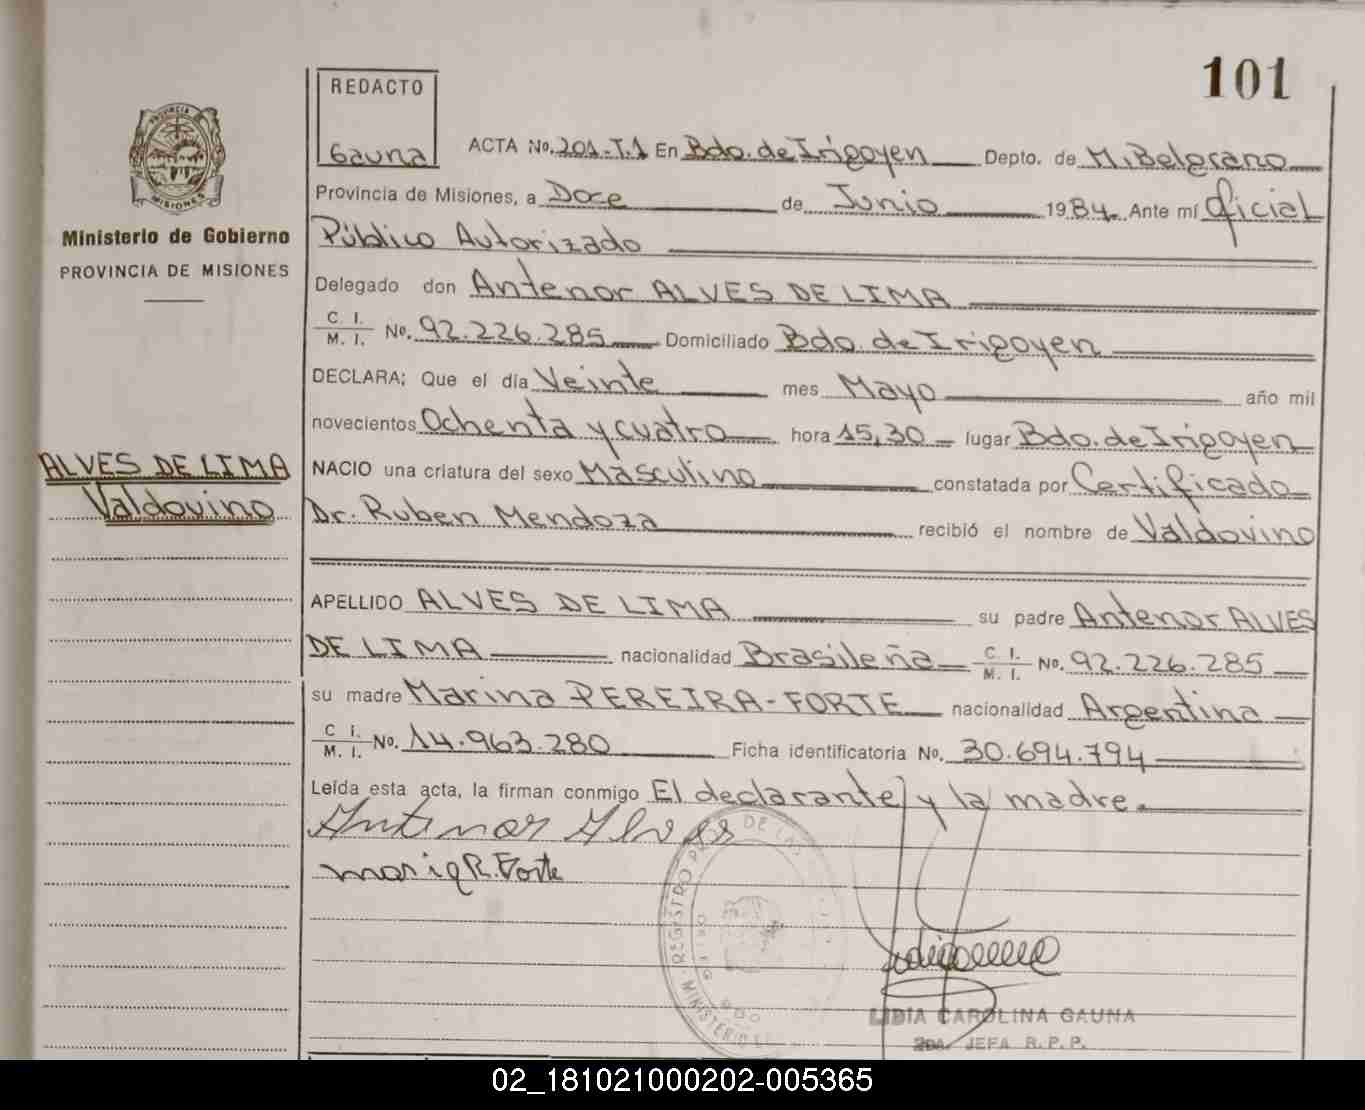 101
REDACTO
Gauna
PROVINCIA
MISIONES
Ministerio de Gobierno
PROVINCIA DE MISIONES
ALVES DE LIMA
Valdovino
ACTA No. 201-T.1 En Bdo. de Irigoyen Depto. de M. Belgrano
Provincia de Misiones, a Doce de Junio 1984. Ante mí Oficial
Público Autorizado
Delegado don Antenor ALVES DE LIMA
C. I.
M. I. No. 92.226.285 Domiciliado Bdo. de Irigoyen
DECLARA; Que el día Veinte mes Mayo año mil
novecientos Ochenta y cuatro hora 15,30 lugar Bdo. de Irigoyen
NACIO una criatura del sexo Masculino constatada por Certificado
Dr. Ruben Mendoza recibió el nombre de Valdovino
APELLIDO ALVES DE LIMA su padre Antenor ALVES
DE LIMA nacionalidad Brasileña C. I. M. I. No. 92.226.285
su madre Marina PEREIRA-FORTE nacionalidad Argentina
C I.
M. I. No. 14.963.280 Ficha identificatoria No. 30.694.794
Leída esta acta, la firman conmigo El declarante y la madre.
Antenor Alves
maria R. Forte
REGISTRO PROV. DE LAS
MINISTERIO
LIDIA CAROLINA GAUNA
2da. JEFA R. P. P.
02_181021000202-005365